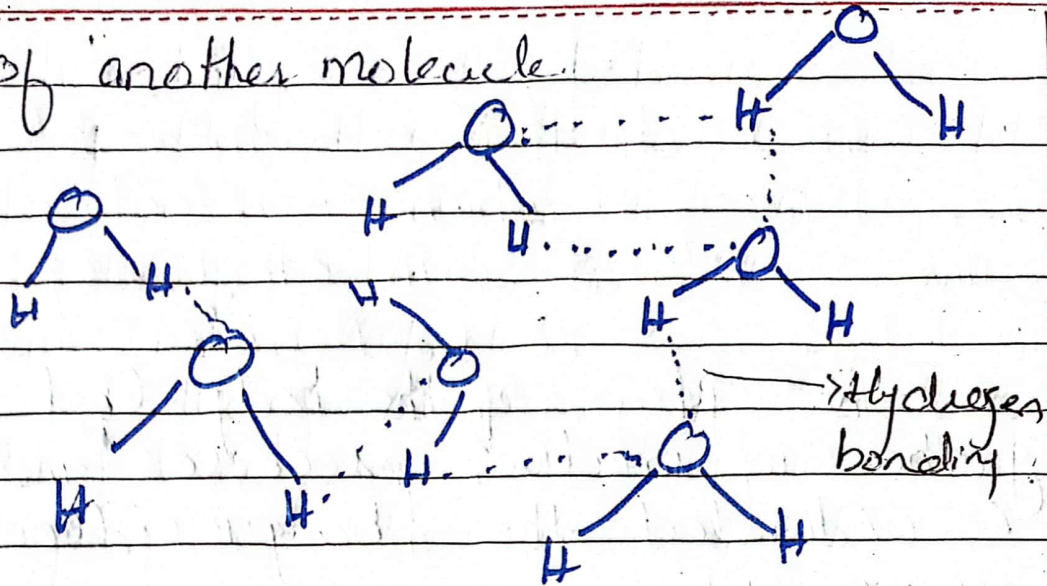 of another molecule
O
H H
O
H H
O
H H
O
H H
H O
H
O
H H
O
H H
Hydrogen
bonding